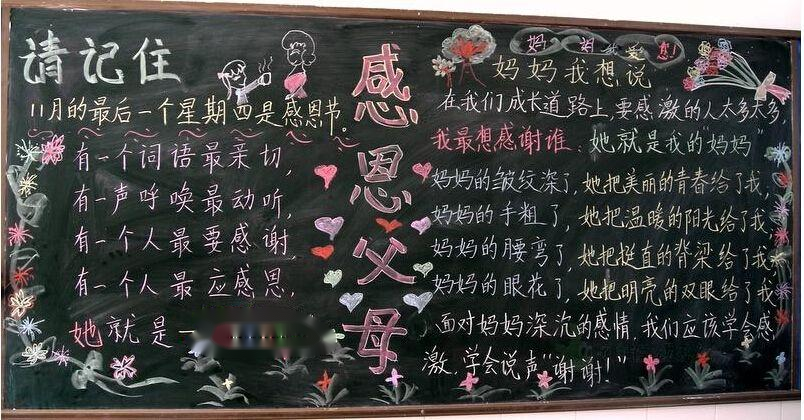 请记住
11月的最后一个星期四是感恩节。
有一个词语最亲切,
有一声呼唤最动听,
有一个人最要感谢,
有一个人最应感恩,
她就是一
感恩父母
妈妈我爱您!
妈妈我想说
在我们成长道路上,要感激的人太多太多,
我最想感谢谁,她就是我的"妈妈"
妈妈的皱纹深了,她把美丽的青春给了我,
妈妈的手粗了,她把温暖的阳光给了我,
妈妈的腰弯了,她把挺直的脊梁给了我,
妈妈的眼花了,她把明亮的双眼给了我,
面对妈妈深沉的感情,我们应该学会感
激,学会说声"谢谢!"